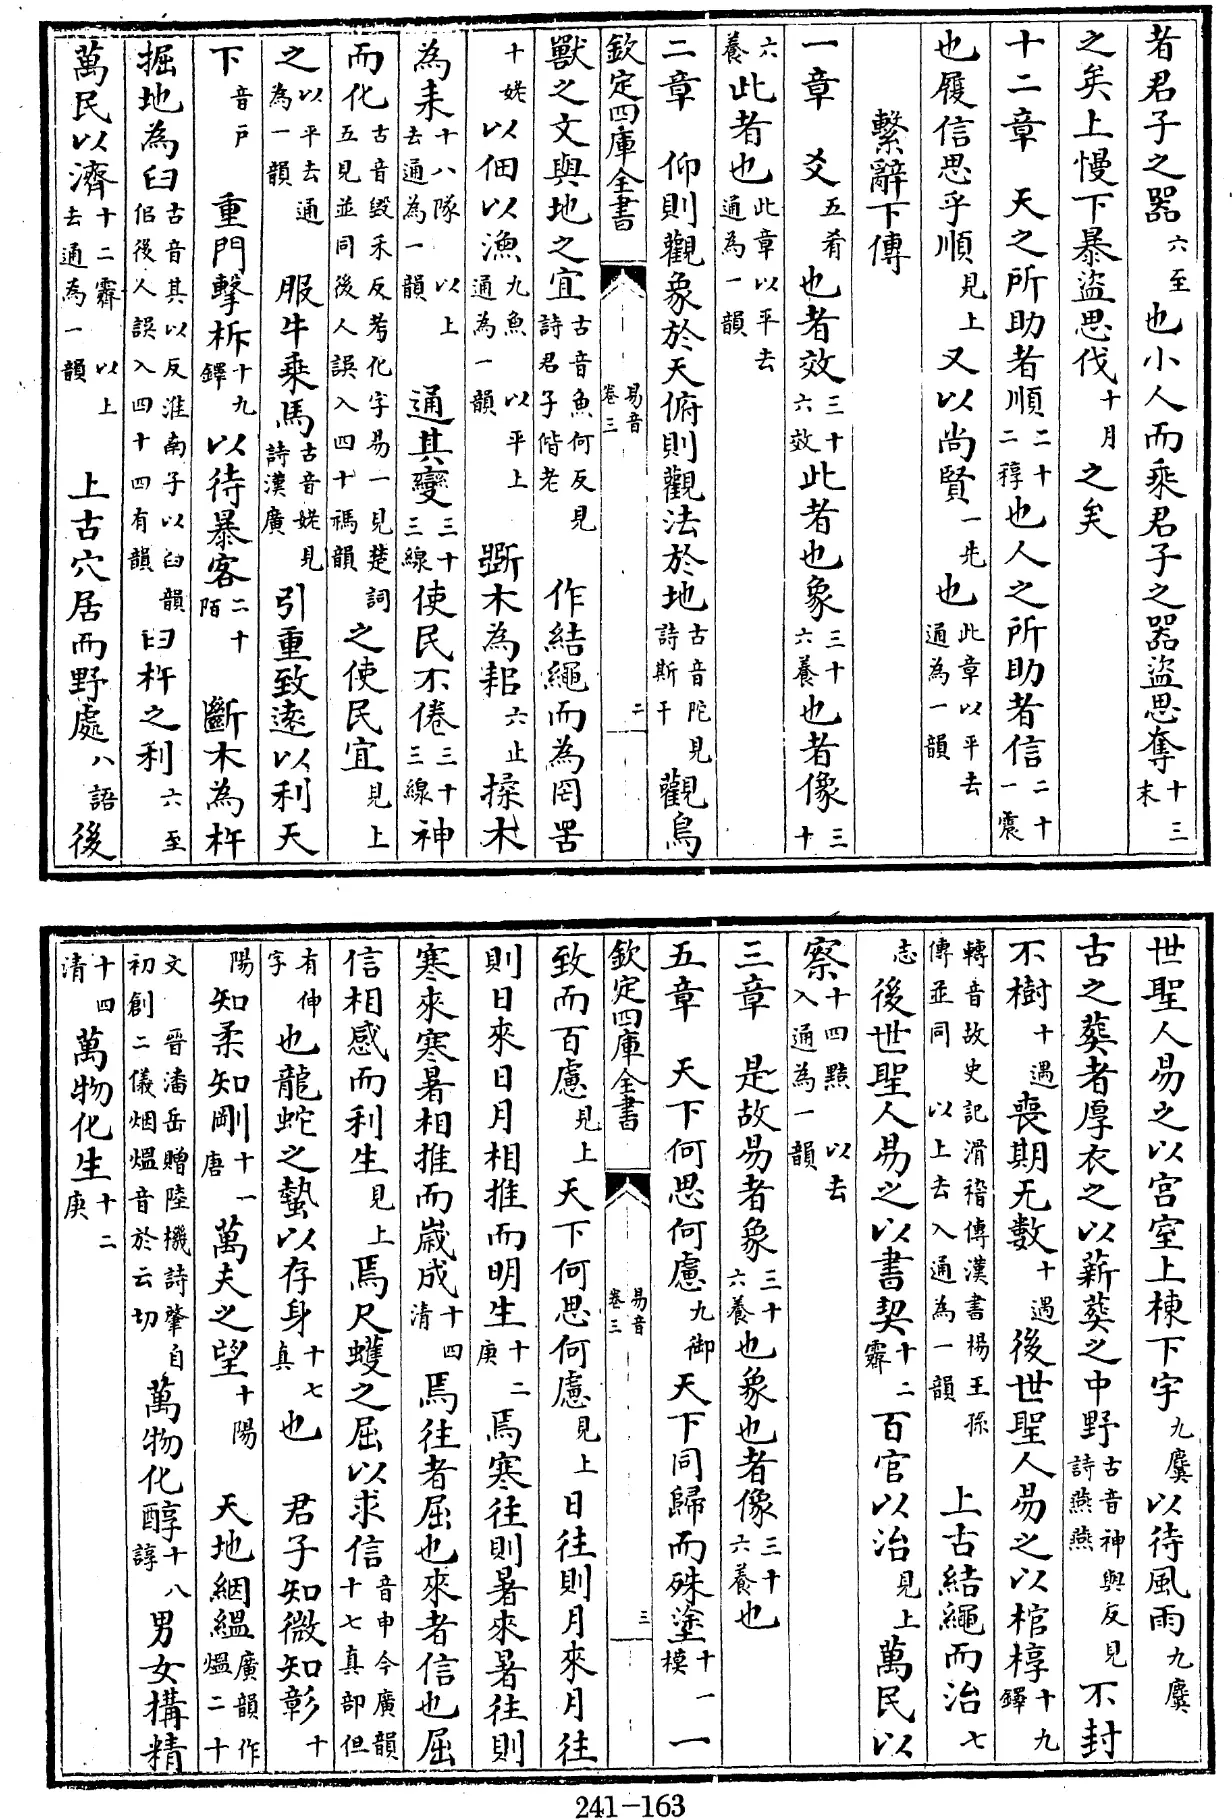 者君子之器六至也小人而乘君子之器盜思奪十三末
之矣上慢下暴盜思伐十月之矣
十二章　天之所助者順二十二稕也人之所助者信二十一震
也履信思乎順見上又以尚賢一先也此章以平去通為一韻
繫辭下傳
一章　爻五肴也者效三十六效此者也象三十六養也者像三十
六養此者也此章以平去通為一韻
二章　仰則觀象於天俯則觀法於地古音陀見詩斯干觀鳥
欽定四庫全書　易音卷三　二
獸之文與地之宜古音魚何反見詩君子偕老　作結繩而為罔罟
十姥以佃以漁九魚　以平上通為一韻　斲木為耜六止揉木
為耒十八隊　以上去通為一韻　通其變三十三線使民不倦三十三線神
而化古音毀禾反考化字易一見楚詞五見並同後人誤入四十禡韻之使民宜見上
之以平去通為一韻　服牛乘馬古音姥見詩漢廣引重致遠以利天
下音戶　重門擊柝十九鐸以待暴客二十陌　斷木為杵
掘地為臼古音其以反淮南子以臼韻佀後人誤入四十四有韻臼杵之利六至
萬民以濟十二霽　以上去通為一韻　上古穴居而野處八語後
世聖人易之以宮室上棟下宇九麌以待風雨九麌
古之葬者厚衣之以薪葬之中野古音神與反見詩燕燕不封
不樹十遇喪期无數十遇後世聖人易之以棺椁十九鐸
轉音故史記滑稽傳漢書楊王孫傳並同　以上去入通為一韻　上古結繩而治七
志後世聖人易之以書契十二霽百官以治見上萬民以
察十四黠　以去入通為一韻
三章　是故易者象三十六養也象也者像三十六養也
五章　天下何思何慮九御天下同歸而殊塗十一模一
欽定四庫全書　易音卷三　三
致而百慮見上天下何思何慮見上日往則月來月往
則日來日月相推而明生十二庚焉寒往則暑來暑往則
寒來寒暑相推而嵗成十四清焉往者屈也來者信也屈
信相感而利生見上焉尺蠖之屈以求信音申今廣韻十七真部但
有伸字也龍蛇之蟄以存身十七真也　君子知微知彰十
陽知柔知剛十一唐萬夫之望十陽　天地絪縕廣韻作熅二十
文　晉潘岳贈陸機詩肇自初創二儀烟熅音於云切萬物化醇十八諄男女構精
十四清萬物化生十二庚
241-163